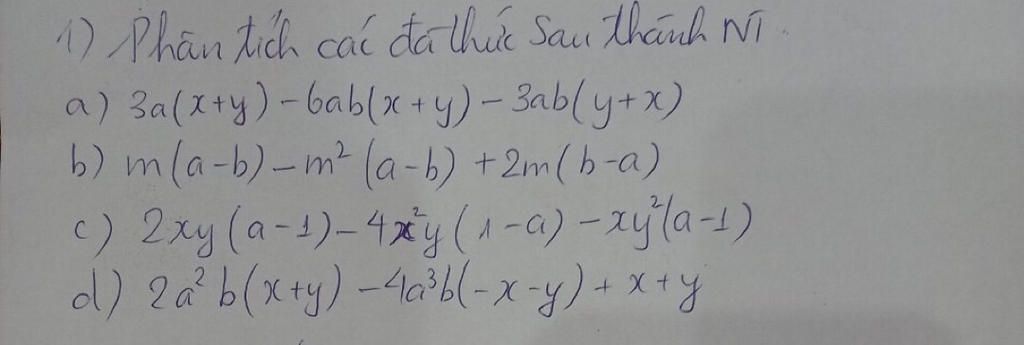 1) Phân tích các đa thức sau thành NT.
a) 3a(x+y) - 6ab(x+y) - 3ab(y+x)
b) m(a-b) - m² (a-b) + 2m(b-a)
c) 2xy(a-1) - 4x²y(1-a) - xy²(a-1)
d) 2a²b(x+y) - 4a³b(-x-y) + x+y